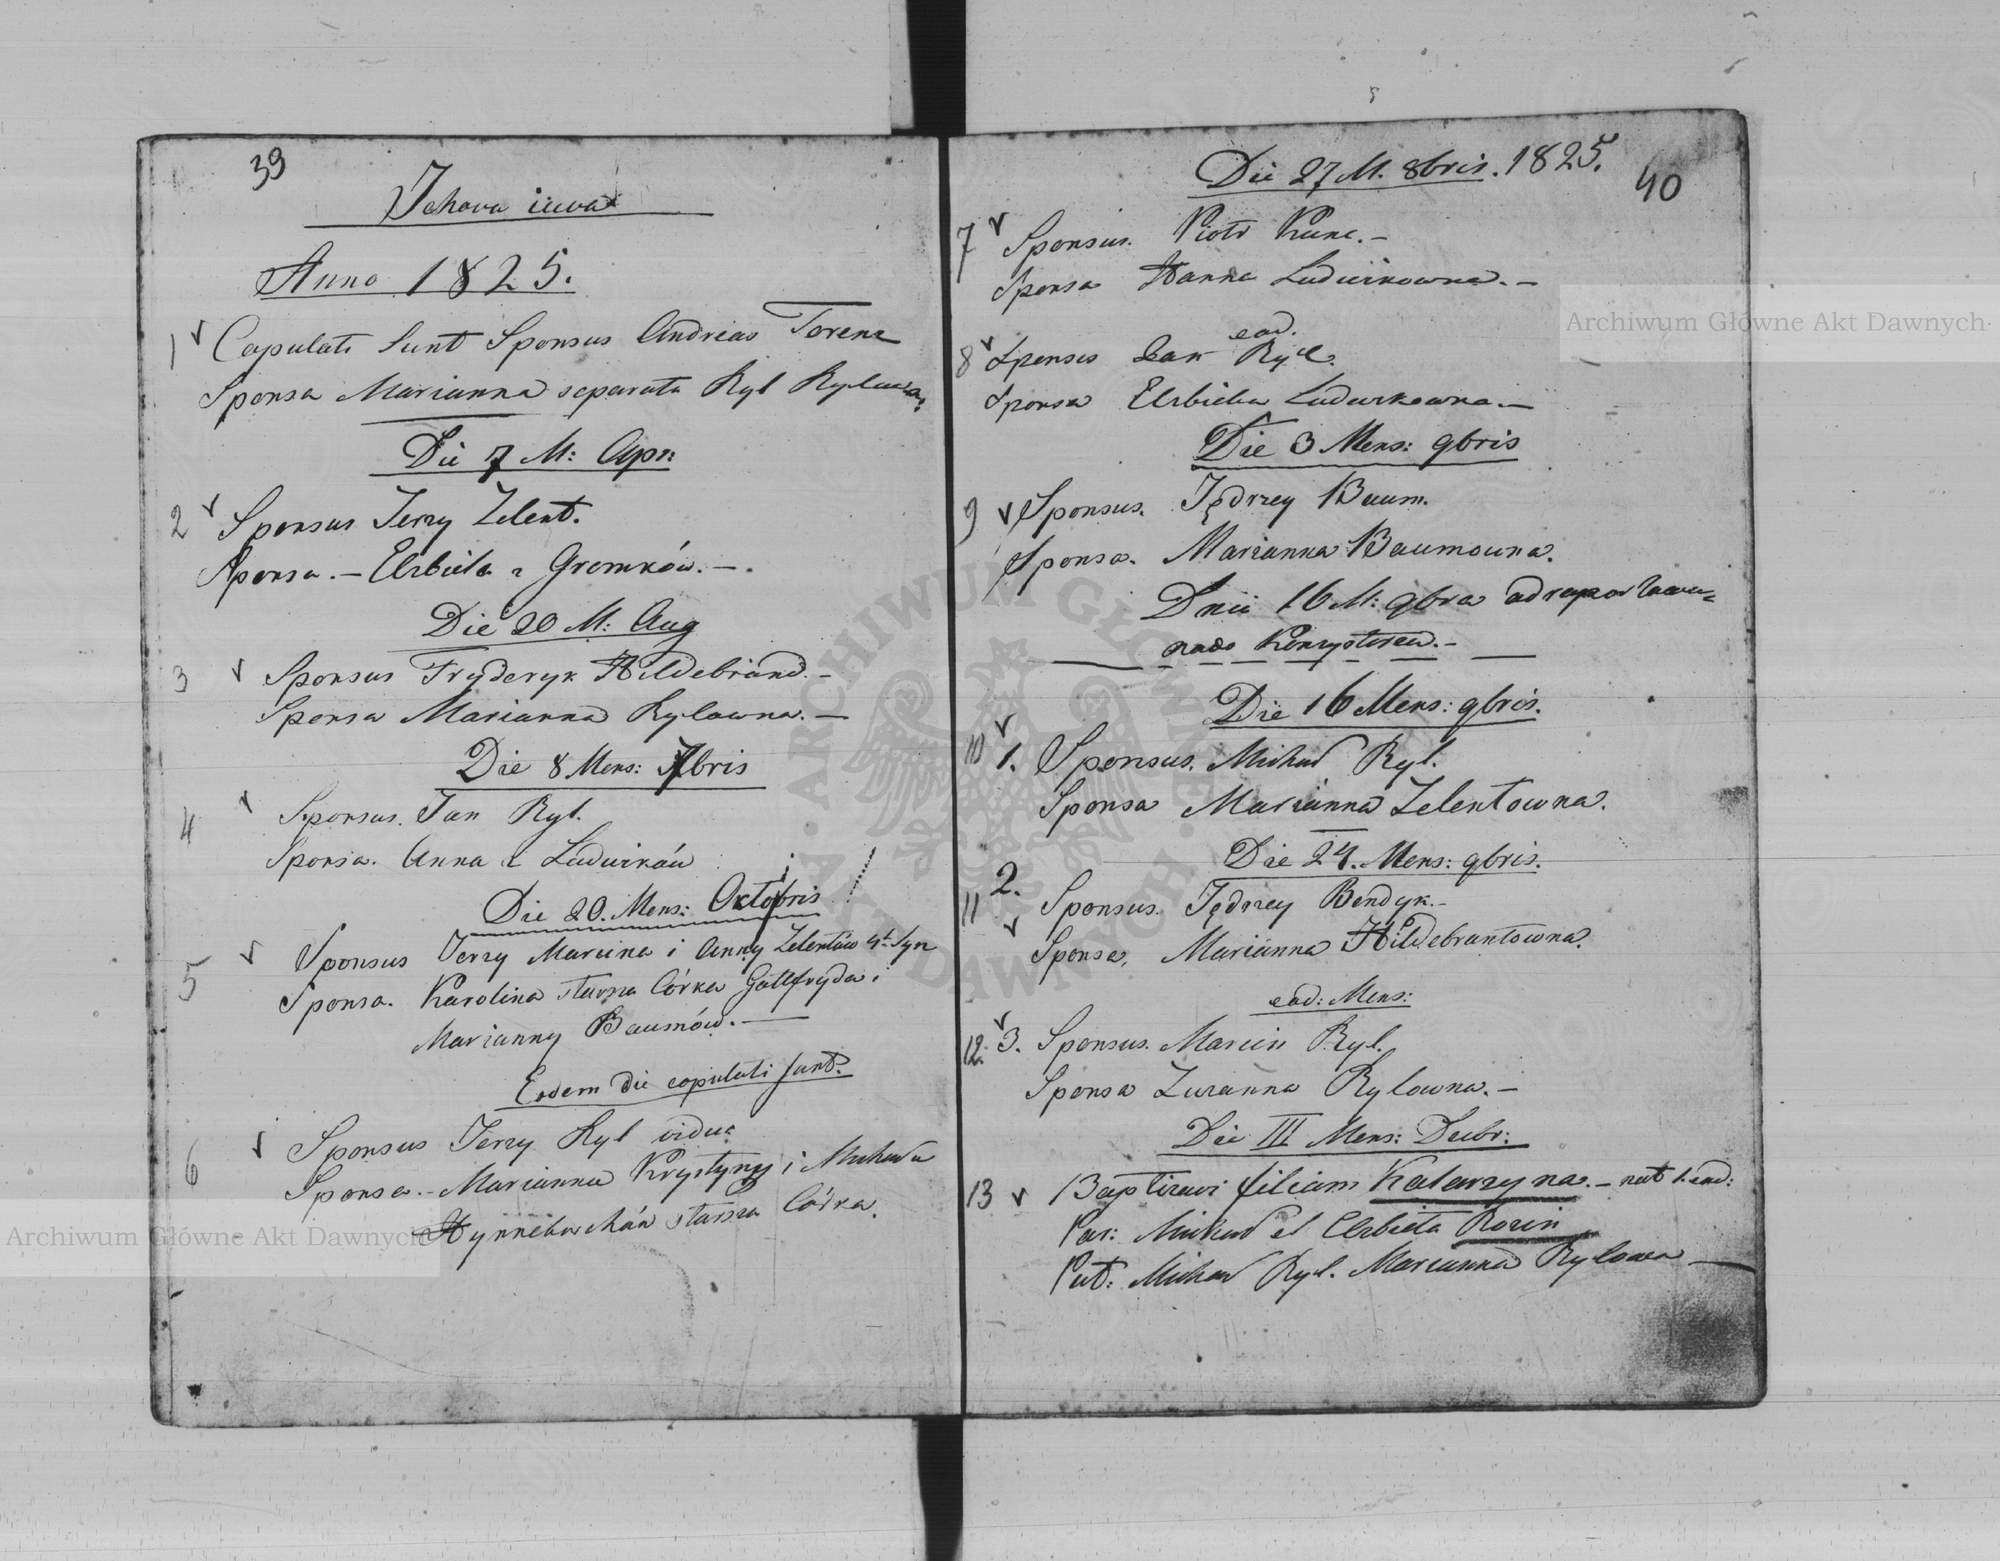 39
Jehova iuva
Anno 1825.
1 Copulati Sunt Sponsus Andreas Torenz
Sponsa Marianna separata Ryl
Die 7 M: Apr:
2 Sponsus Jerzy Zelent.
Sponsa. – Elzbieta z Gromków. –.
Die 20 M: Aug
3 Sponsus Fryderyk Hildebrand. –
Sponsa Marianna Rylowna. –
Die 8 Mens: 7bris
4 Sponsus. Jan Ryl.
Sponsa. Anna z Ludwików
Die 20. Mens: Oktobris
5 Sponsus Jerzy Marcina i Anny Zelentów 4t. Syn
Sponsa. Karolina starsza Córka Gottfryda i
Marianny Baumów. –
Eodem die copulati sunt.
6 Sponsus Jerzy Ryl
Sponsa. – Marianna Krystyny i Michała
starsza Córka.
Die 27 M. 8bris. 1825.
40
7 Sponsus. Piotr Kunc. –
Sponsa Hanna Ludwikowna. –
ead.
8 Sponsus Jan Ryl.
Sponsa Elzbieta Ludwikowna. –
Die 3 Mens: 9bris
9 Sponsus. Jędrzey Baum.
Sponsa. Marianna Baumowna.
Dnii 16 M: 9bra
Die 16 Mens: 9bris.
10 1. Sponsus. Michał Ryl.
Sponsa Marianna Zelentowna.
Die 24. Mens: 9bris.
11 2. Sponsus. Jędrzey Bendyk. –
Sponsa, Marianna Hildebrantowna.
ead: Mens:
12. 3. Sponsus. Marcin Ryl.
Sponsa Zuzanna Rylowna. –
Die III Mens: Decbr:
13 Baptizavi filiam Katarzyna. – nat. ead:
Par: Michał et Elzbieta Rozin
Pat: Michał Ryl. Marianna Rylowa
Archiwum Główne Akt Dawnych
Archiwum Główne Akt Dawnych
ARCHIWUM GŁÓWNE AKT DAWNYCH